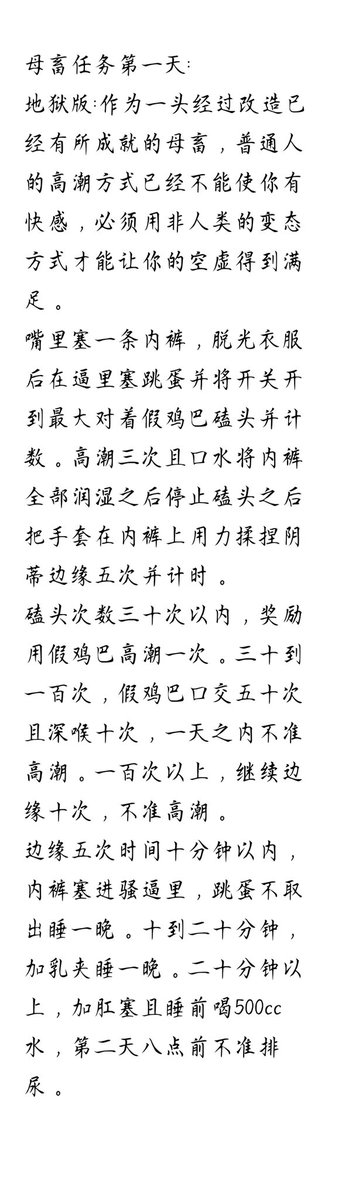 母畜任务第一天:
地狱版:作为一头经过改造已
经有所成就的母畜，普通人
的高潮方式已经不能使你有
快感，必须用非人类的变态
方式才能让你的空虚得到满
足。
嘴里塞一条内裤，脱光衣服
后在逼里塞跳蛋并将开关开
到最大对着假鸡巴磕头并计
数。高潮三次且口水将内裤
全部润湿之后停止磕头之后
把手套在内裤上用力揉捏阴
蒂边缘五次并计时。
磕头次数三十次以内，奖励
用假鸡巴高潮一次。三十到
一百次，假鸡巴口交五十次
且深喉十次，一天之内不准
高潮。一百次以上，继续边
缘十次，不准高潮。
边缘五次时间十分钟以内，
内裤塞进骚逼里，跳蛋不取
出睡一晚。十到二十分钟，
加乳夹睡一晚。二十分钟以
上，加肛塞且睡前喝500cc
水，第二天八点前不准排
尿。